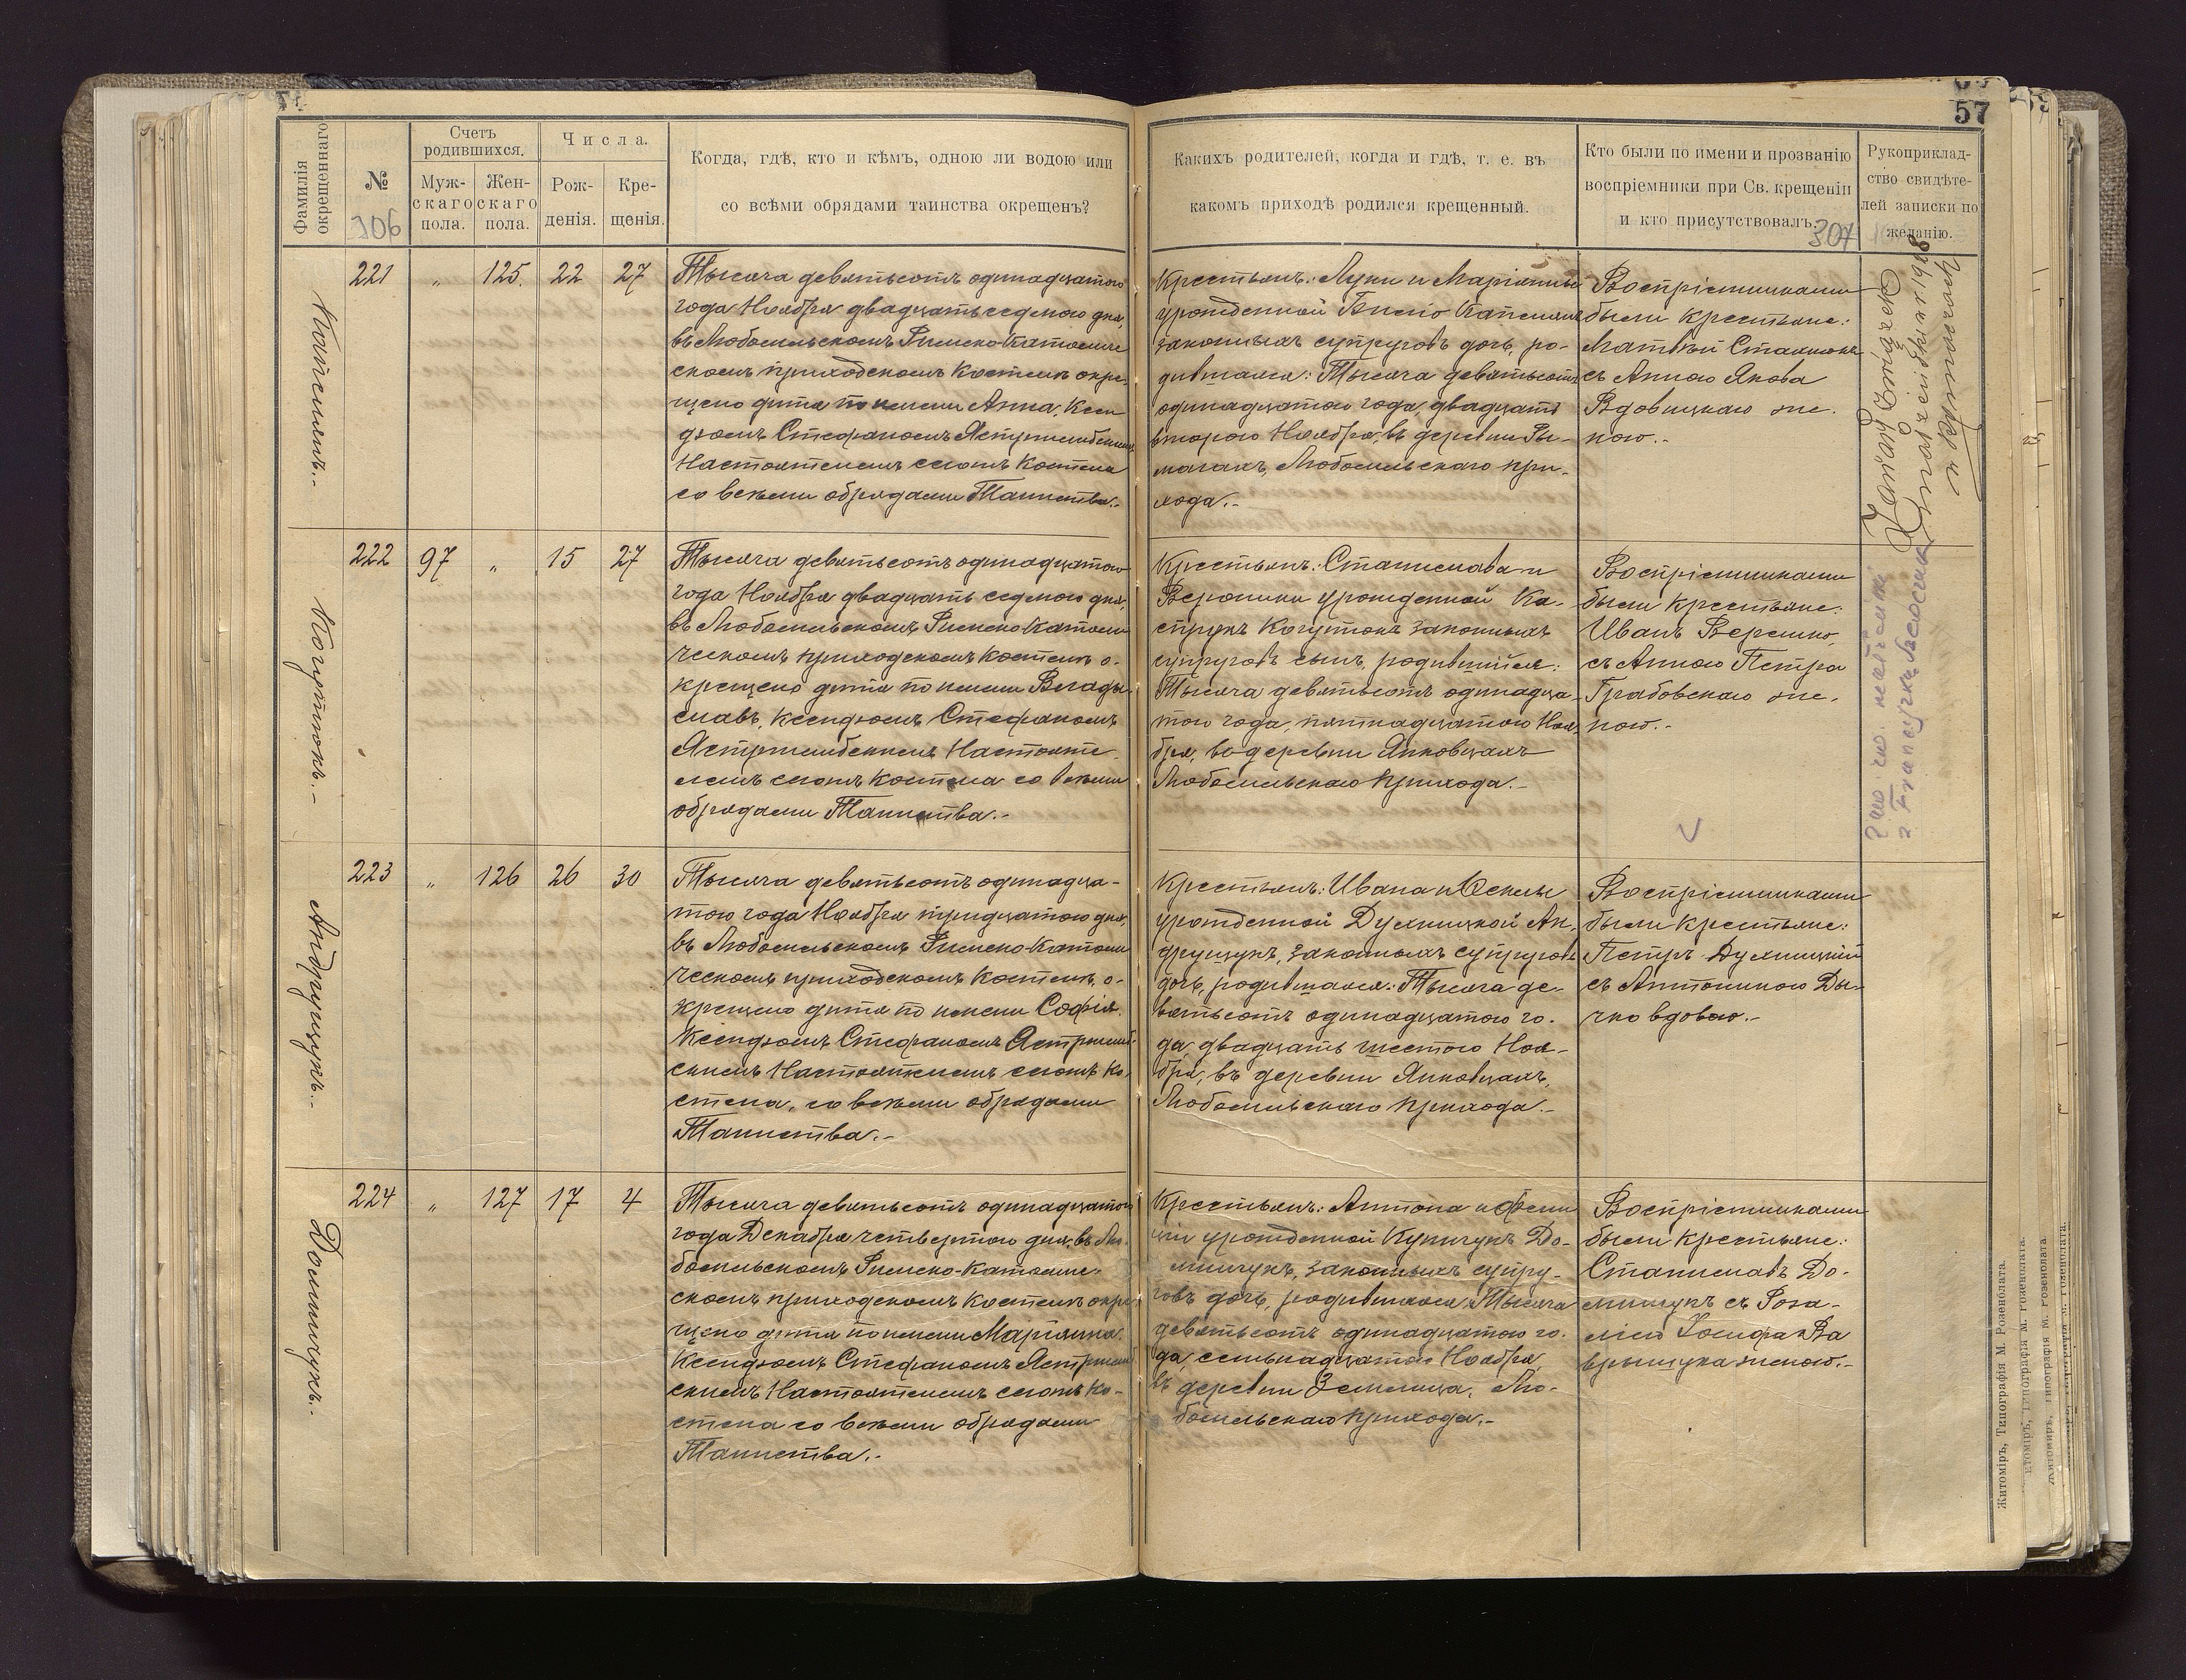 57
Фамилія
окрещеннаго
№
306
Счетъ
родившихся.
Муж-
скаго
пола.
Жен-
скаго
пола.
Числа.
Рож-
денія.
Кре-
щенія.
Когда, гдѣ, кто и кѣмъ, одною ли водою или
со всѣми обрядами таинства окрещенъ?
Какихъ родителей, когда и гдѣ, т. е. въ
какомъ приходѣ родился крещенный.
Кто были по имени и прозванію
воспріемники при Св. крещеніи
и кто присутствовалъ.
307
Рукоприклад-
ство свидѣте-
лей записки по
желанію.
221 „ 125. 22 27
Тысяча девятьсотъ одинадцатого
года Ноября двадцать седмого дня,
въ Любомльскомъ Римско-Католиче
скомъ приходскомъ Костелѣ окре-
щено дитя по имени Анна, Ксен
дзомъ Стефаномъ
Настоятелемъ сегожъ Костела
со всѣми обрядами Таинства.-
Крестьянъ: Луки и Маріянны
урожденной
законныхъ супруговъ дочь, ро-
дившаяся: Тысяча девятьсотъ
одинадцатого года, двадцать
второго Ноября, въ деревни Ры-
мачахъ, Любомльскаго при-
хода.-
Воспріемниками
были крестьяне:
Матвѣй
съ Анною Якова
Вдовицкаго же-
ною.-
222 97 „ 15 27
Когутюкъ.-
Тысяча девятьсотъ одинадцатого
года Ноября двадцать седмого дня,
въ Любомльскомъ Римско-Католи
ческомъ приходскомъ Костелѣ о-
крещено дитя по имени Влади-
славъ, Ксендзомъ Стефаномъ
Ястржембскимъ Настояте
лемъ сегожъ Костела со всѣми
обрядами Таинства.-
Крестьянъ: Станислава и
Вероники урожденной Ка-
спрукъ Когутюкъ законныхъ
супруговъ сынъ, родившійся:
Тысяча девятьсотъ одинадца-
того года, пятнадцатого Ноя-
бря, во деревни Янковцахъ
Любомльскаго прихода.-
Воспріемниками
были крестьяне:
Иванъ Верешко,
съ Анною Петра
Грабовскаго же-
ною.-
223 „ 126 26 30
Андрущукъ.-
Тысяча девятьсотъ одинадца-
того года Ноября тридцатого дня,
въ Любомльскомъ Римско-Католи
ческомъ приходскомъ Костелѣ, о-
крещено дитя по имени Софія,
Ксендзомъ Стефаномъ Ястржемб-
скимъ Настоятелемъ сегожъ Ко-
стела, со всѣми обрядами
Таинства.-
Крестьянъ: Ивана и
урожденной Духницкой Ан-
друщукъ, законныхъ супруговъ
дочь, родившаяся: Тысяча де-
вятьсотъ одинадцатого го-
да, двадцать шестого Ноя-
бря, въ деревни Янковцахъ,
Любомльскаго прихода.-
Воспріемниками
были крестьяне:
Петръ Духницкій
съ Антониною Ды-
чко вдовою.-
224 „ 127 17 4
Доминчукъ.-
Тысяча девятьсотъ одинадцатого
года Декабря четвертого дня, въ Лю-
бомльскомъ Римско-Католиче-
скомъ приходскомъ Костелѣ окре-
щено дитя по имени Маріянна,
Ксендзомъ Стефаномъ Ястржемб
скимъ Настоятелемъ сегожъ Ко-
стела со всѣми обрядами
Таинства.-
Крестьянъ: Антона и Фели
ціи урожденной Купчукъ До-
минчукъ, законныхъ супру-
говъ дочь, родившаяся: Тысяча
девятьсотъ одинадцатого го-
да, семьнадцатого Ноября,
въ деревни Землица, Лю-
бомльскаго прихода.-
Воспріемниками
были крестьяне:
Станиславъ До-
минчукъ съ Роза-
ліею Іосифа Ва
врищука женою.-
Житоміръ, Типографія М. Розенблата.